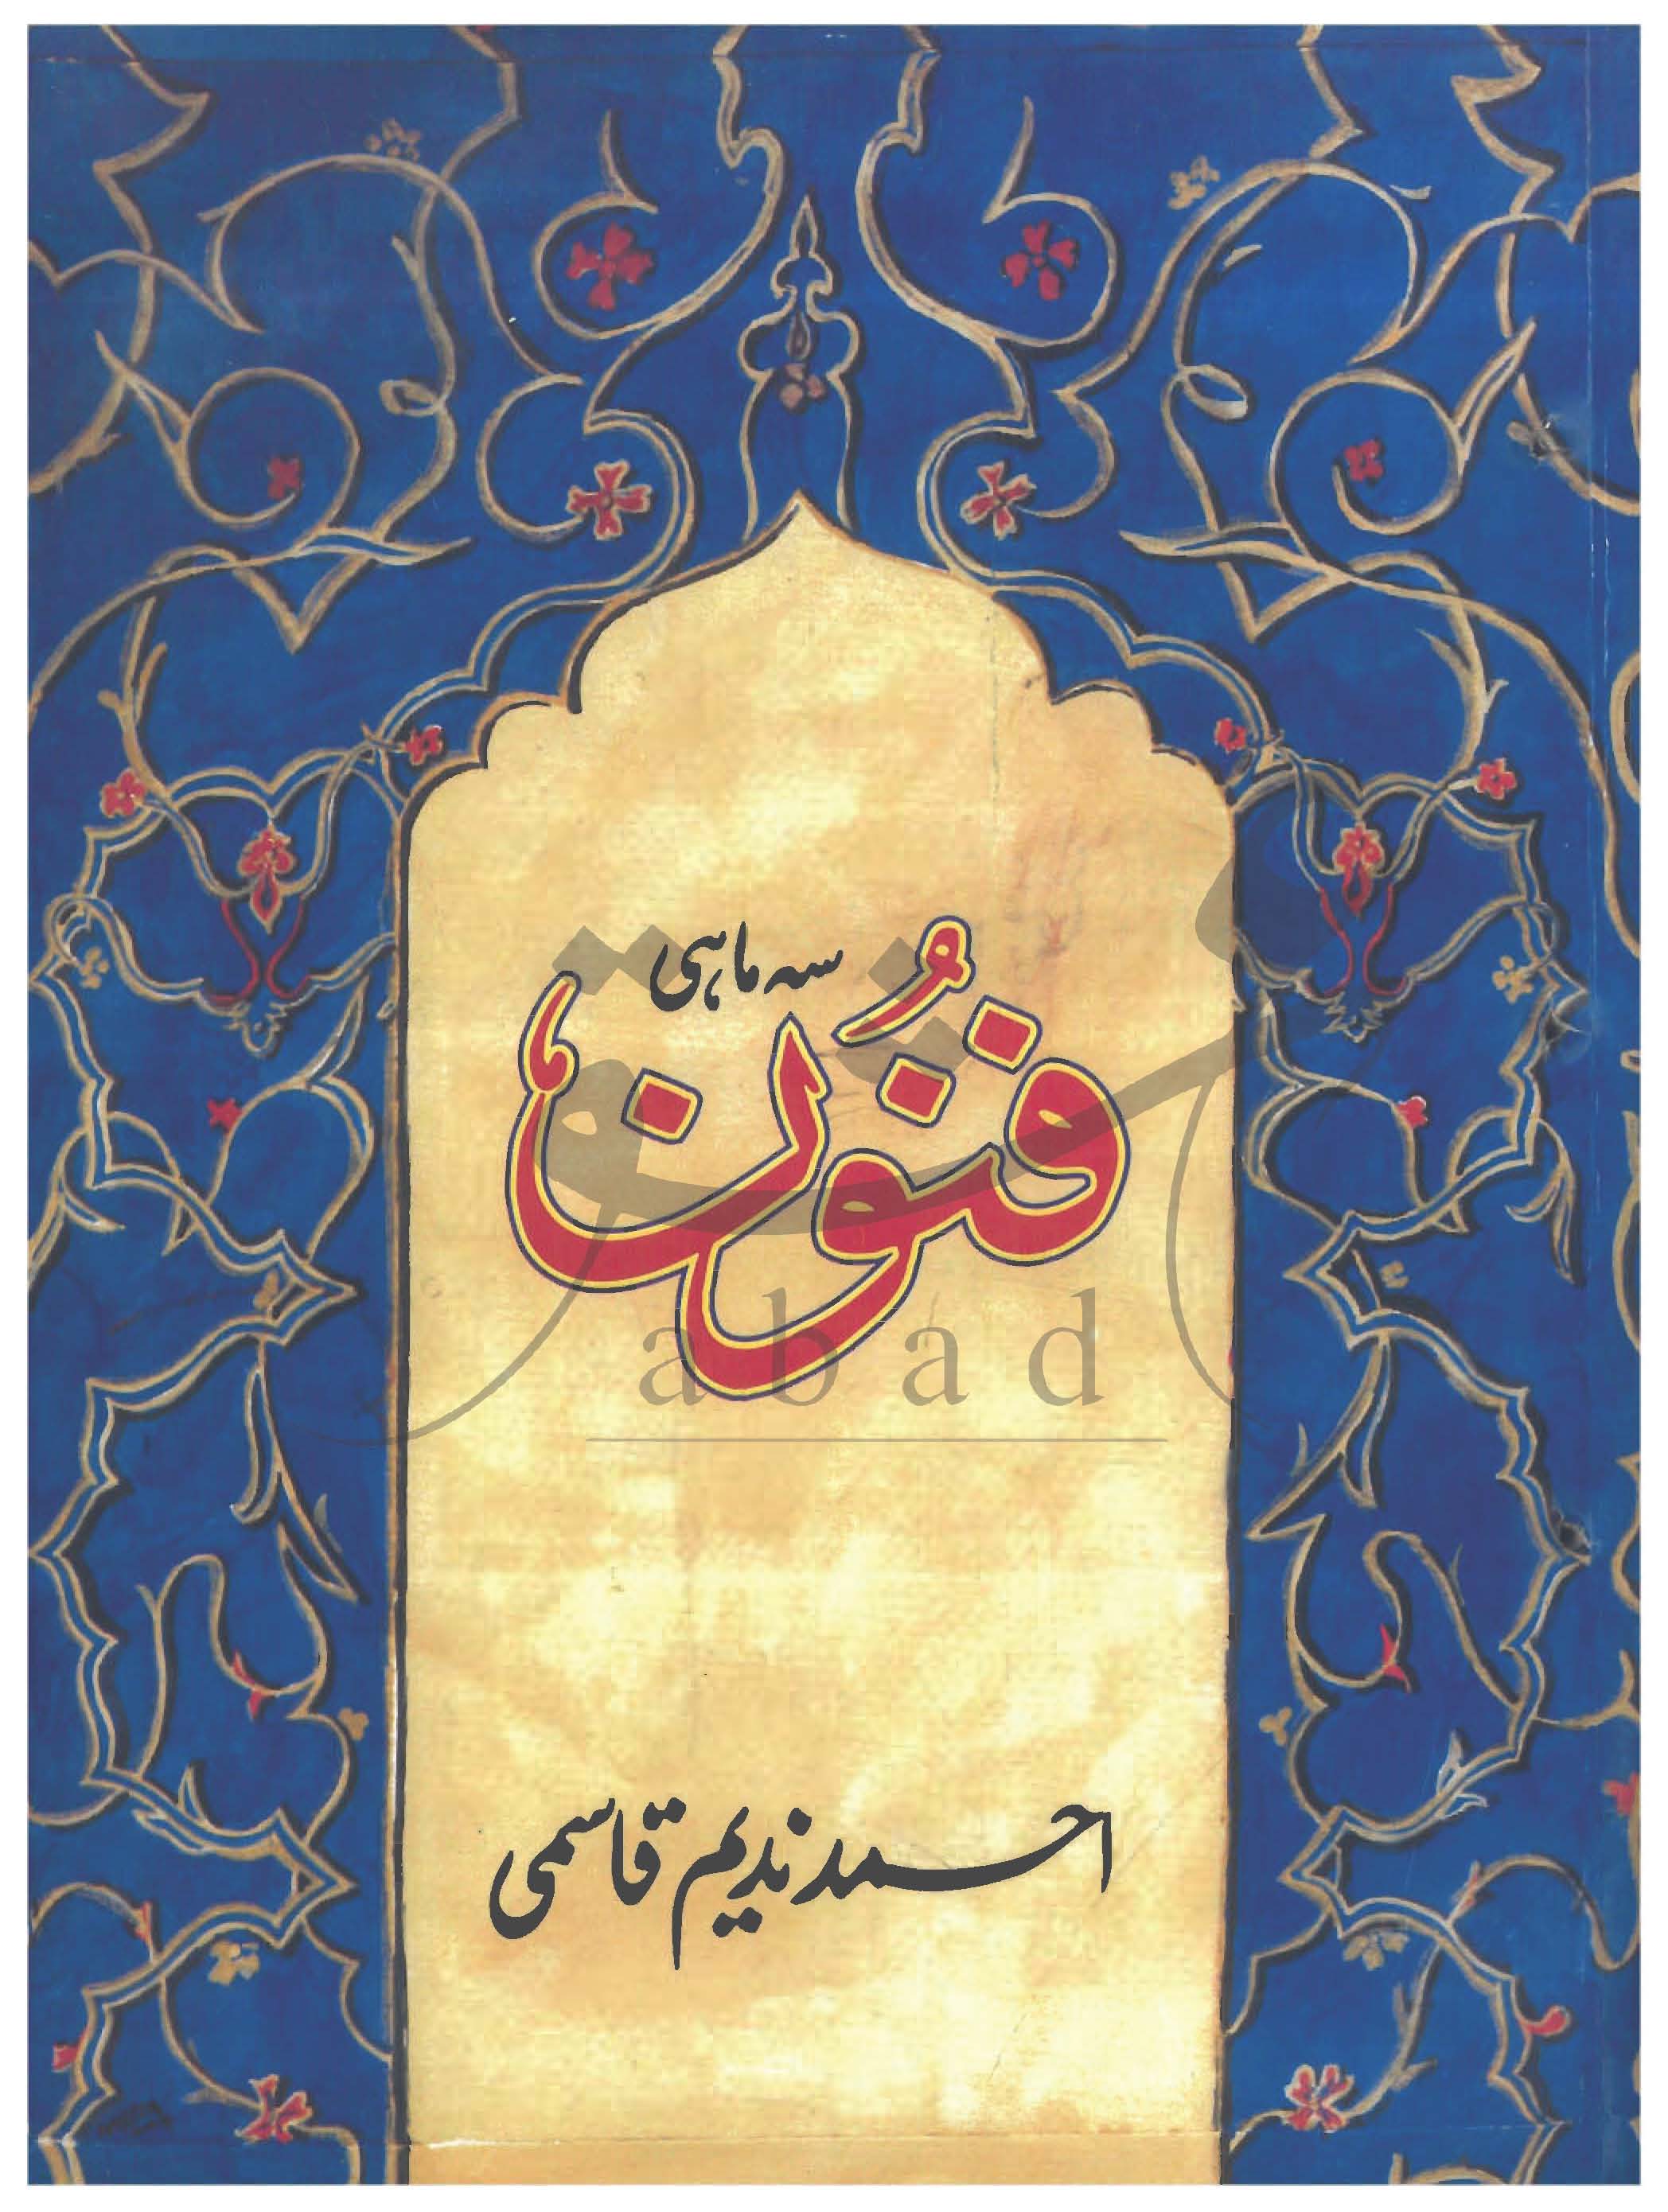 سہ ماہی
فنون
عشق
abad
احمد ندیم قاسمی